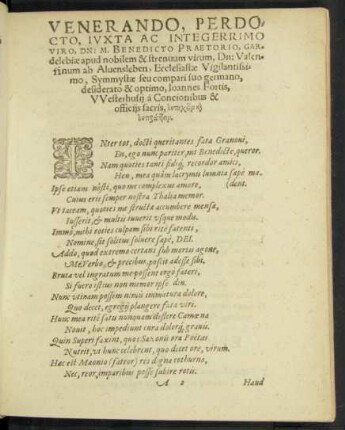 VENERANDO, PERDO-
CTO, IVXTA AC INTEGERRIMO
VIRO, DN: M. BENEDICTO PRAETORIO, Gar-
delebiæ apud nobilem & strenuum virum, Dn: Valen-
tinum ab Aluensleben, Ecclesiastæ Vigilantissi-
mo, Symmystæ seu compari suo germano,
desiderato & optimo, Ioannes Fortis,
VVesterhusij à Concionibus &
officijs sacris,
INter tot, docti queritantes fata Granoni,
En, ego nunc pariter, mi Benedicte, queror.
Nam quoties tanti fidiq; recordor amici,
Heu, mea quàm lacrymis lumina sæpè ma-
Ipse etiam nôsti, quo me complexus amore, (dent.
Cuius erit semper nostra Thalia memor.
Vt taceam, quoties me structæ accumbere mensæ,
Iusserit, & multis iuuerit vsque modis.
Immò, mihi toties culpam sibi ritè fatenti,
Nomine sit solitus soluere sæpè, DEI.
Addo, quod extrema certans sub mortis agone,
Me Verba, & precibus poscit adesse sibi.
Bruta vel ingratum me possent ergò fateri,
Si fuero istius non memor ipse diu.
Nunc vtinam possim nimis immatura dolore,
Quo decet, egregij plangere fata viri.
Hunc mea ritè fata nunquam discere Camœna
Nouit, hoc impediunt cura dolorq; grauis.
Quin Superi faxint, quos Saxonis ora Poëtas
Nutrit, vt hunc celebrent, quo decet ore, virum.
Hæc est Mæonio (fateor) res digna cothurno,
Nec, reor, imparibus posse subire rotis.
A 2 Haud